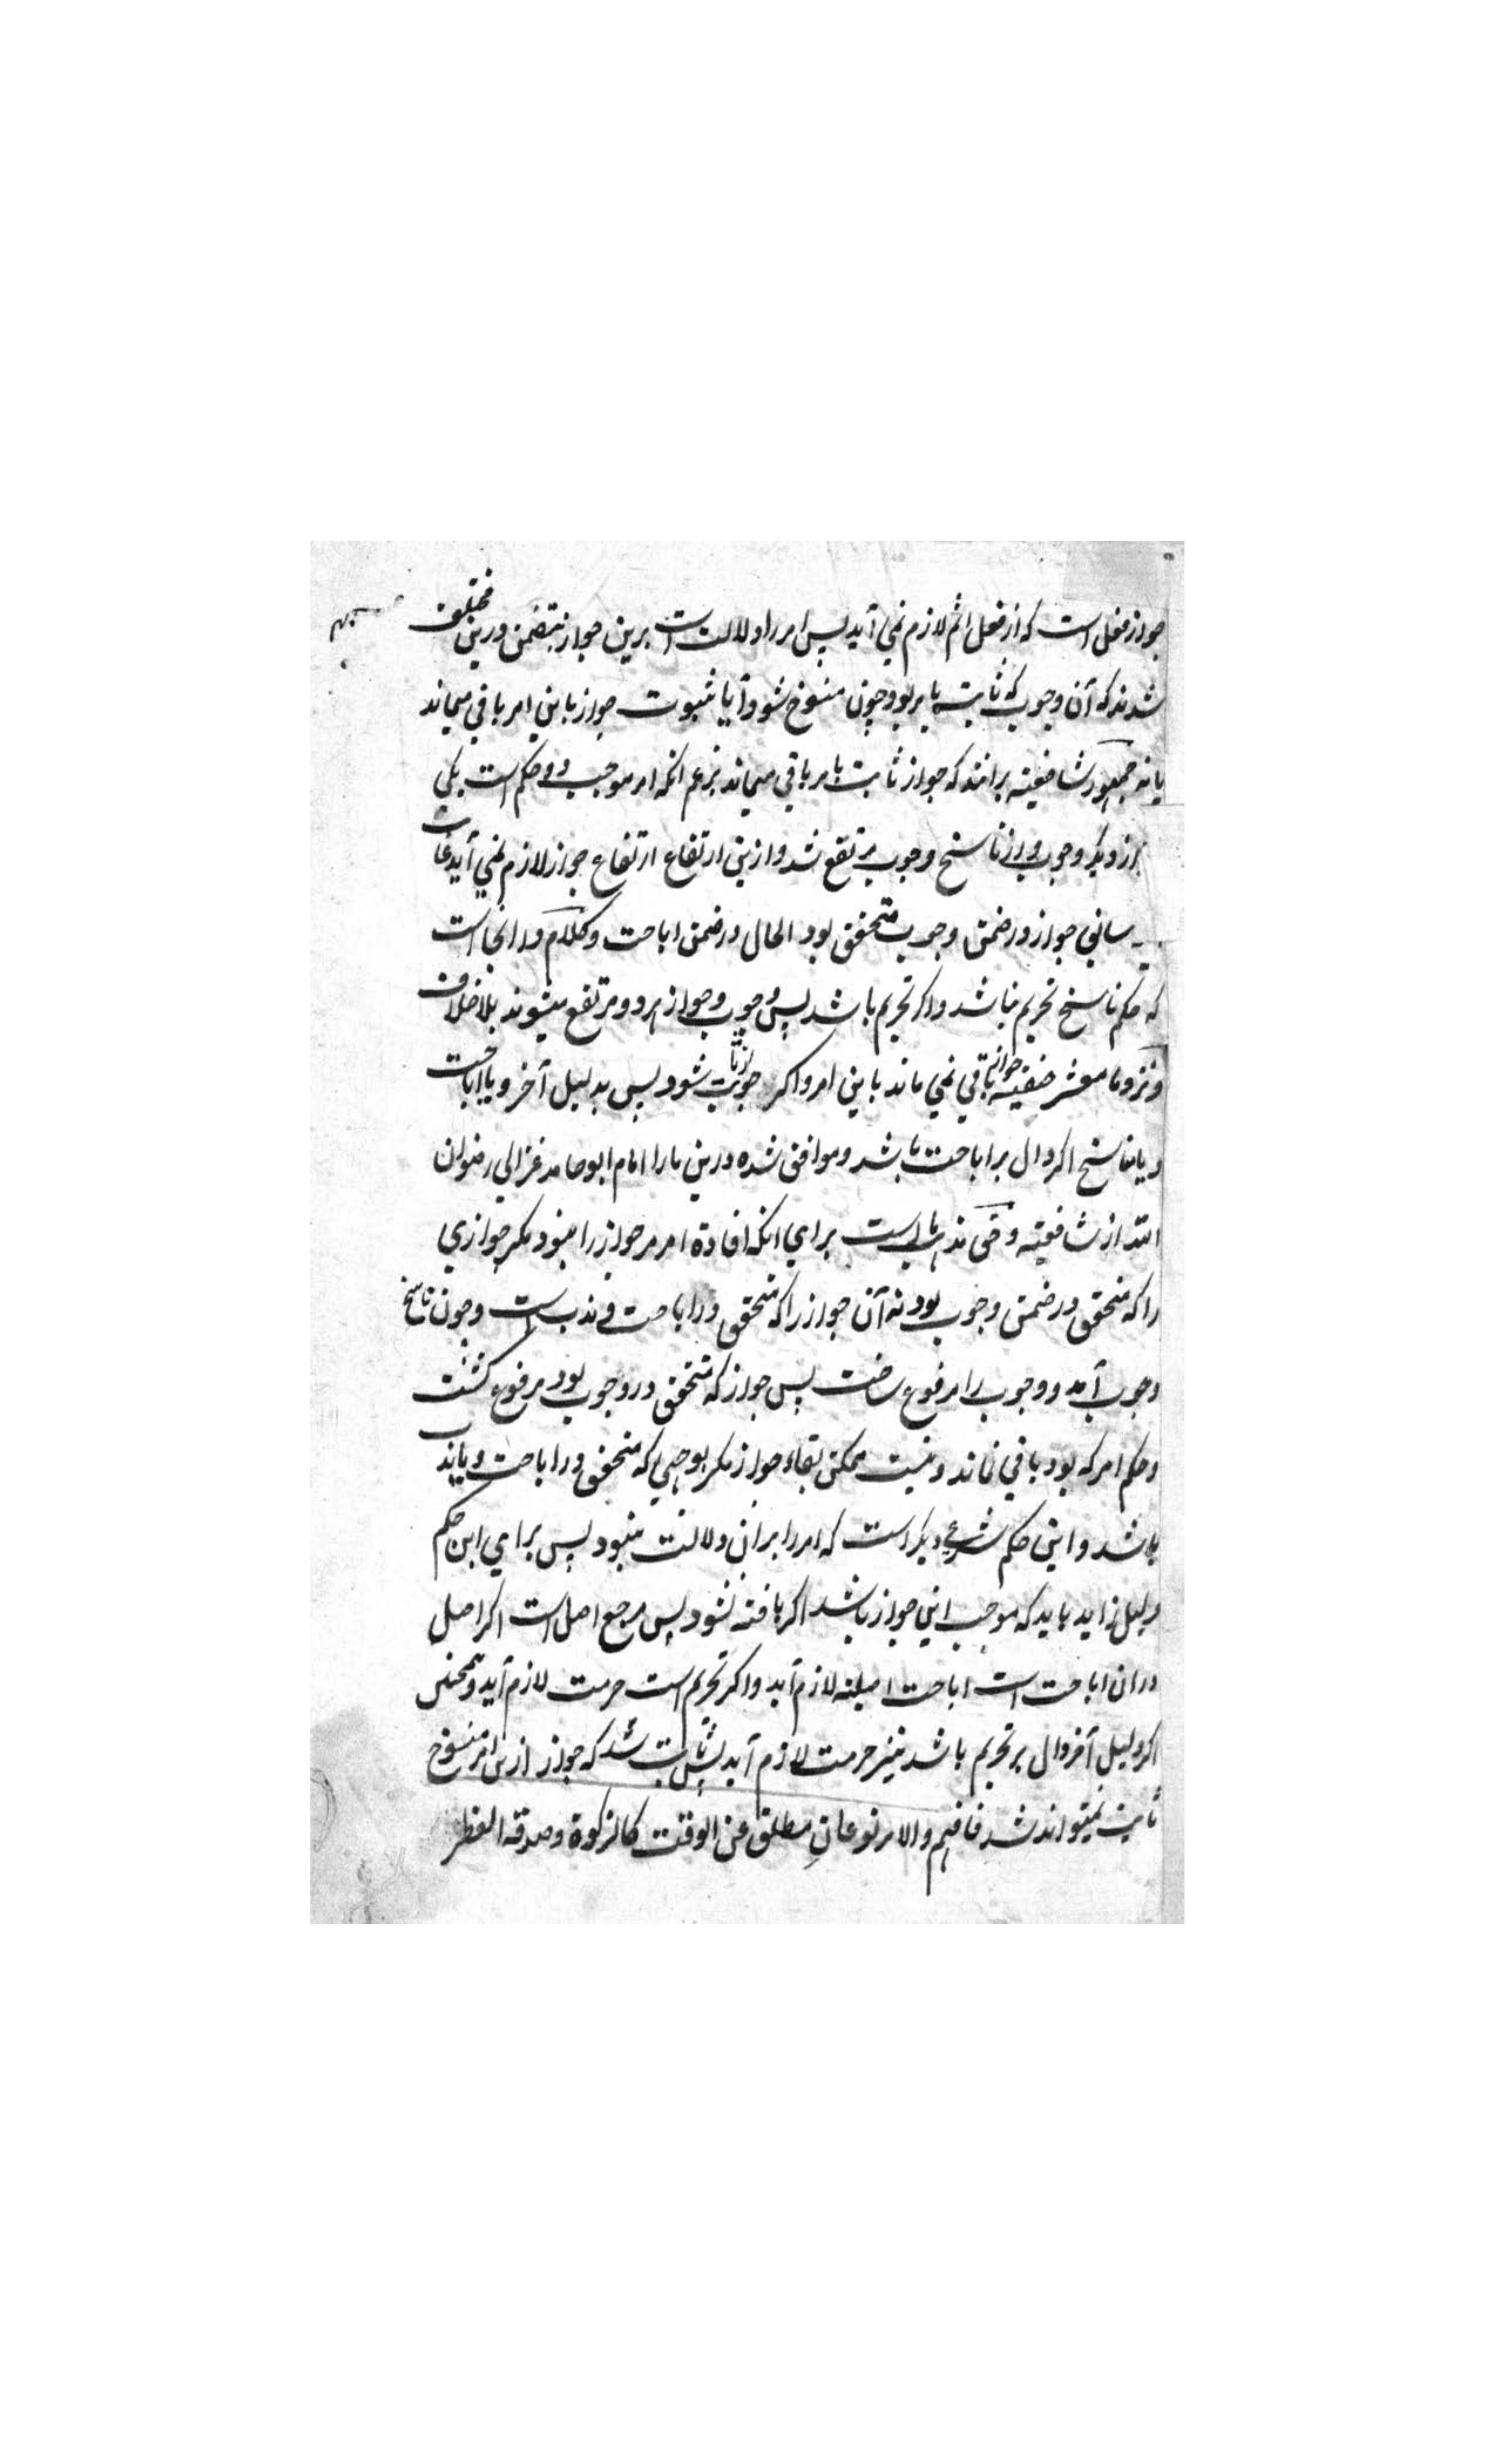 جواز فعل است که از فعل اثم لازم نمي آيد پس امر را دلالت است برين جواز بتضمن و درين مختلف
شدند که آن وجوب که ثابت بامر بود چون منسوخ شود آيا ثبوت جواز باين امر باقي ميماند
يا نه جمهور شافعيه برانند که جواز ثابت بامر باقي ميماند بزعم انکه امر موجب دو حکم است يکي
از ديگر وجوب و از ناسخ وجوب مرتفع شد و ازين ارتفاع ارتفاع جواز لازم نمي آيد غايت
جواز در ضمن وجوب متحقق بود الحال در ضمن اباحت و کلام در انجا است
که حکم ناسخ تحريم نباشد و اکر تحريم باشد پس وجوب و جواز هر دو مرتفع ميشوند بلا خلاف
و نزد ما معشر حنفيه جواز باقي نمي ماند باين امر و اکر جواز ثابت شود پس بدليل آخر و يا اباحت
و يا بناسخ اکر دال بر اباحت باشد و موافق شده درين ما را امام ابو حامد غزالي رضوان
الله از شافعيه و حق مذهب ما است براي انکه افادة امر مر جواز را نبود مکر جوازي
را که متحقق در ضمن وجوب بود نه آن جواز را که متحقق در اباحت و ندب است و چون ناسخ
وجوب آمد و وجوب را مرفوع ساخت پس جواز که متحقق در وجوب بود مرفوع کشت
و حکم امر که بود باقي نماند و نيست ممکن بقاء جواز مکر بوجهي که متحقق در اباحت و يا ندب
باشد و اين حکم شرعي ديکر است که امر را بران دلالت نبود پس براي اين حکم
دليل زايد بايد که موجب اين جواز باشد اکر يافته نشود پس مرجع اصل است اکر اصل
دران اباحت است اباحت اصليه لازم آيد و اکر تحريم است حرمت لازم آيد و همچنين
اکر دليل آخر دال بر تحريم باشد نيز حرمت لازم آيد پس ثابت شد که جواز ازين امر منسوخ
ثابت نميتواند شد فافهم و الامر نوعان مطلق عن الوقت کالزکوة و صدقة الفطر